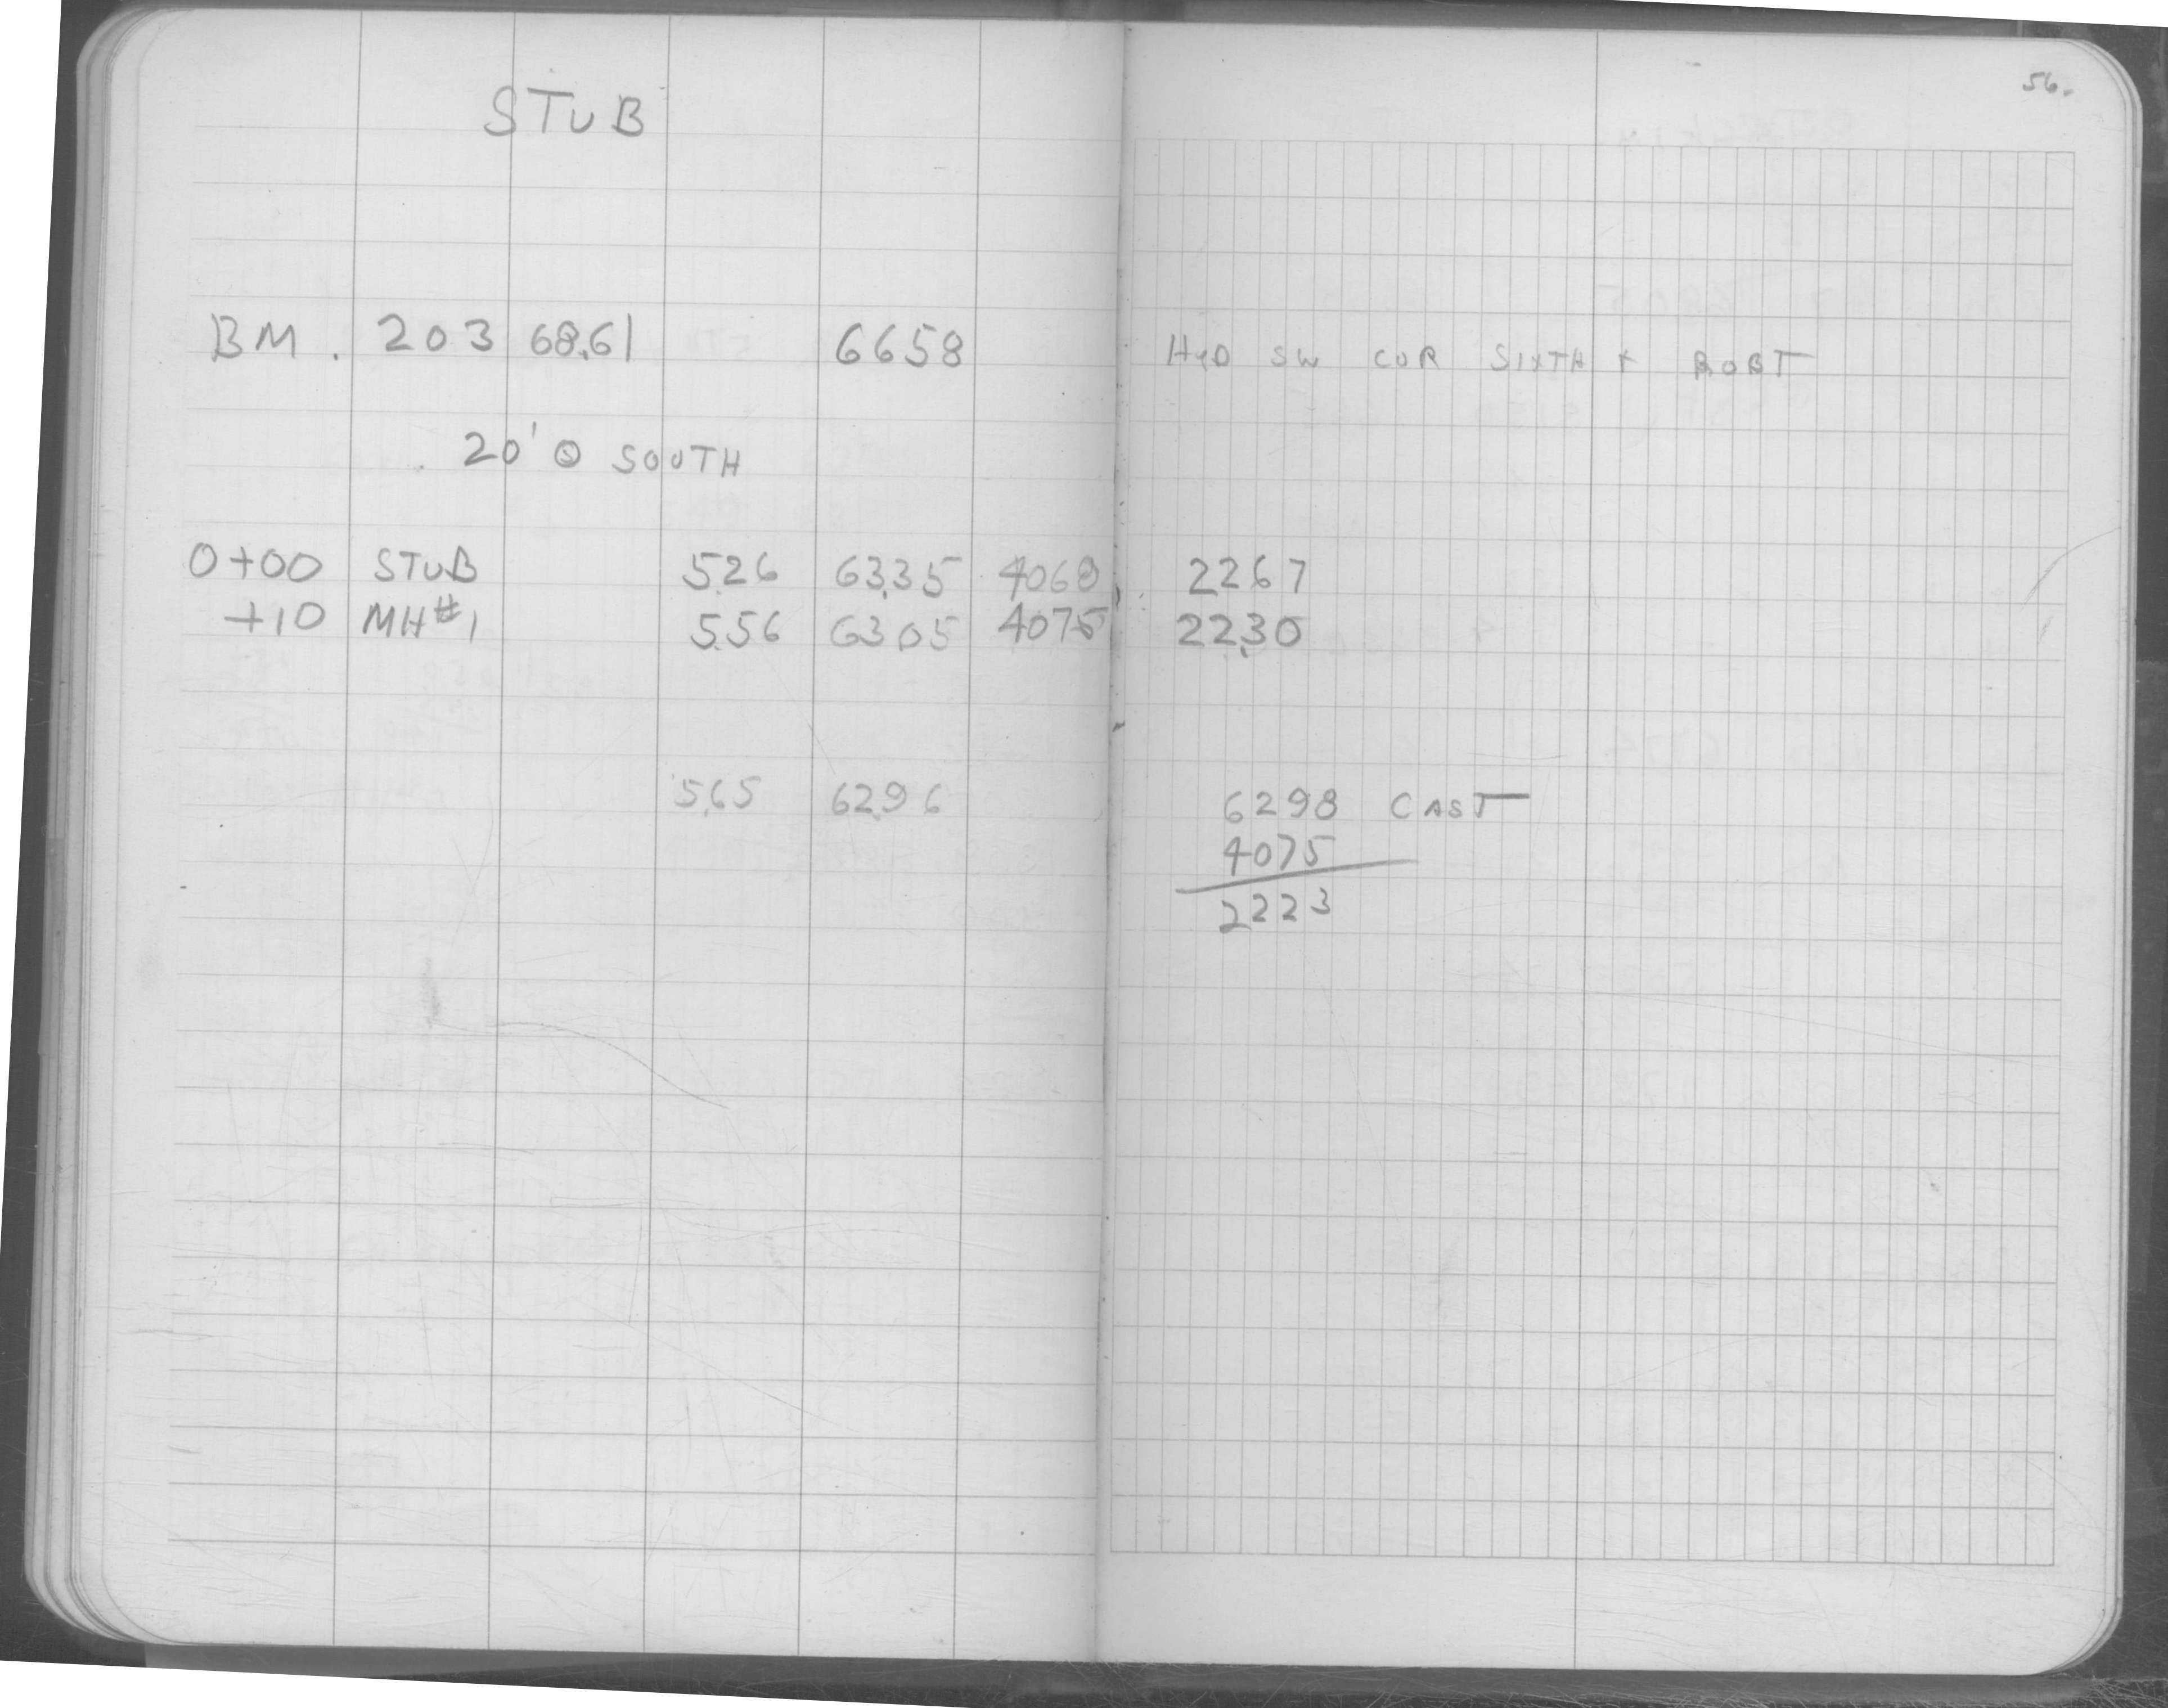 56.
STUB
BM. 203 68.61 6658 HYD SW COR SIXTH + ROBT
20' @ SOUTH
0+00 STUB 5.26 63.35 4068 22.67
+10 MH#1 5.56 63.05 4075 22.30
5.65 62.96 6298 CAST
4075
2223